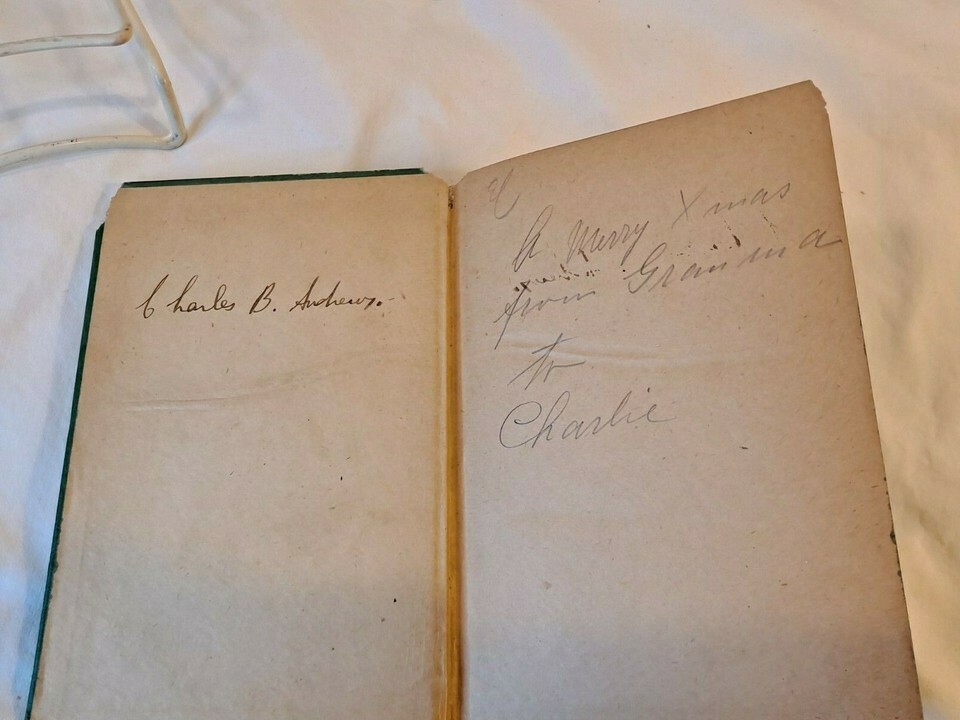 Charles B. Andrews.
A Merry Xmas
from Grandma
to
Charlie